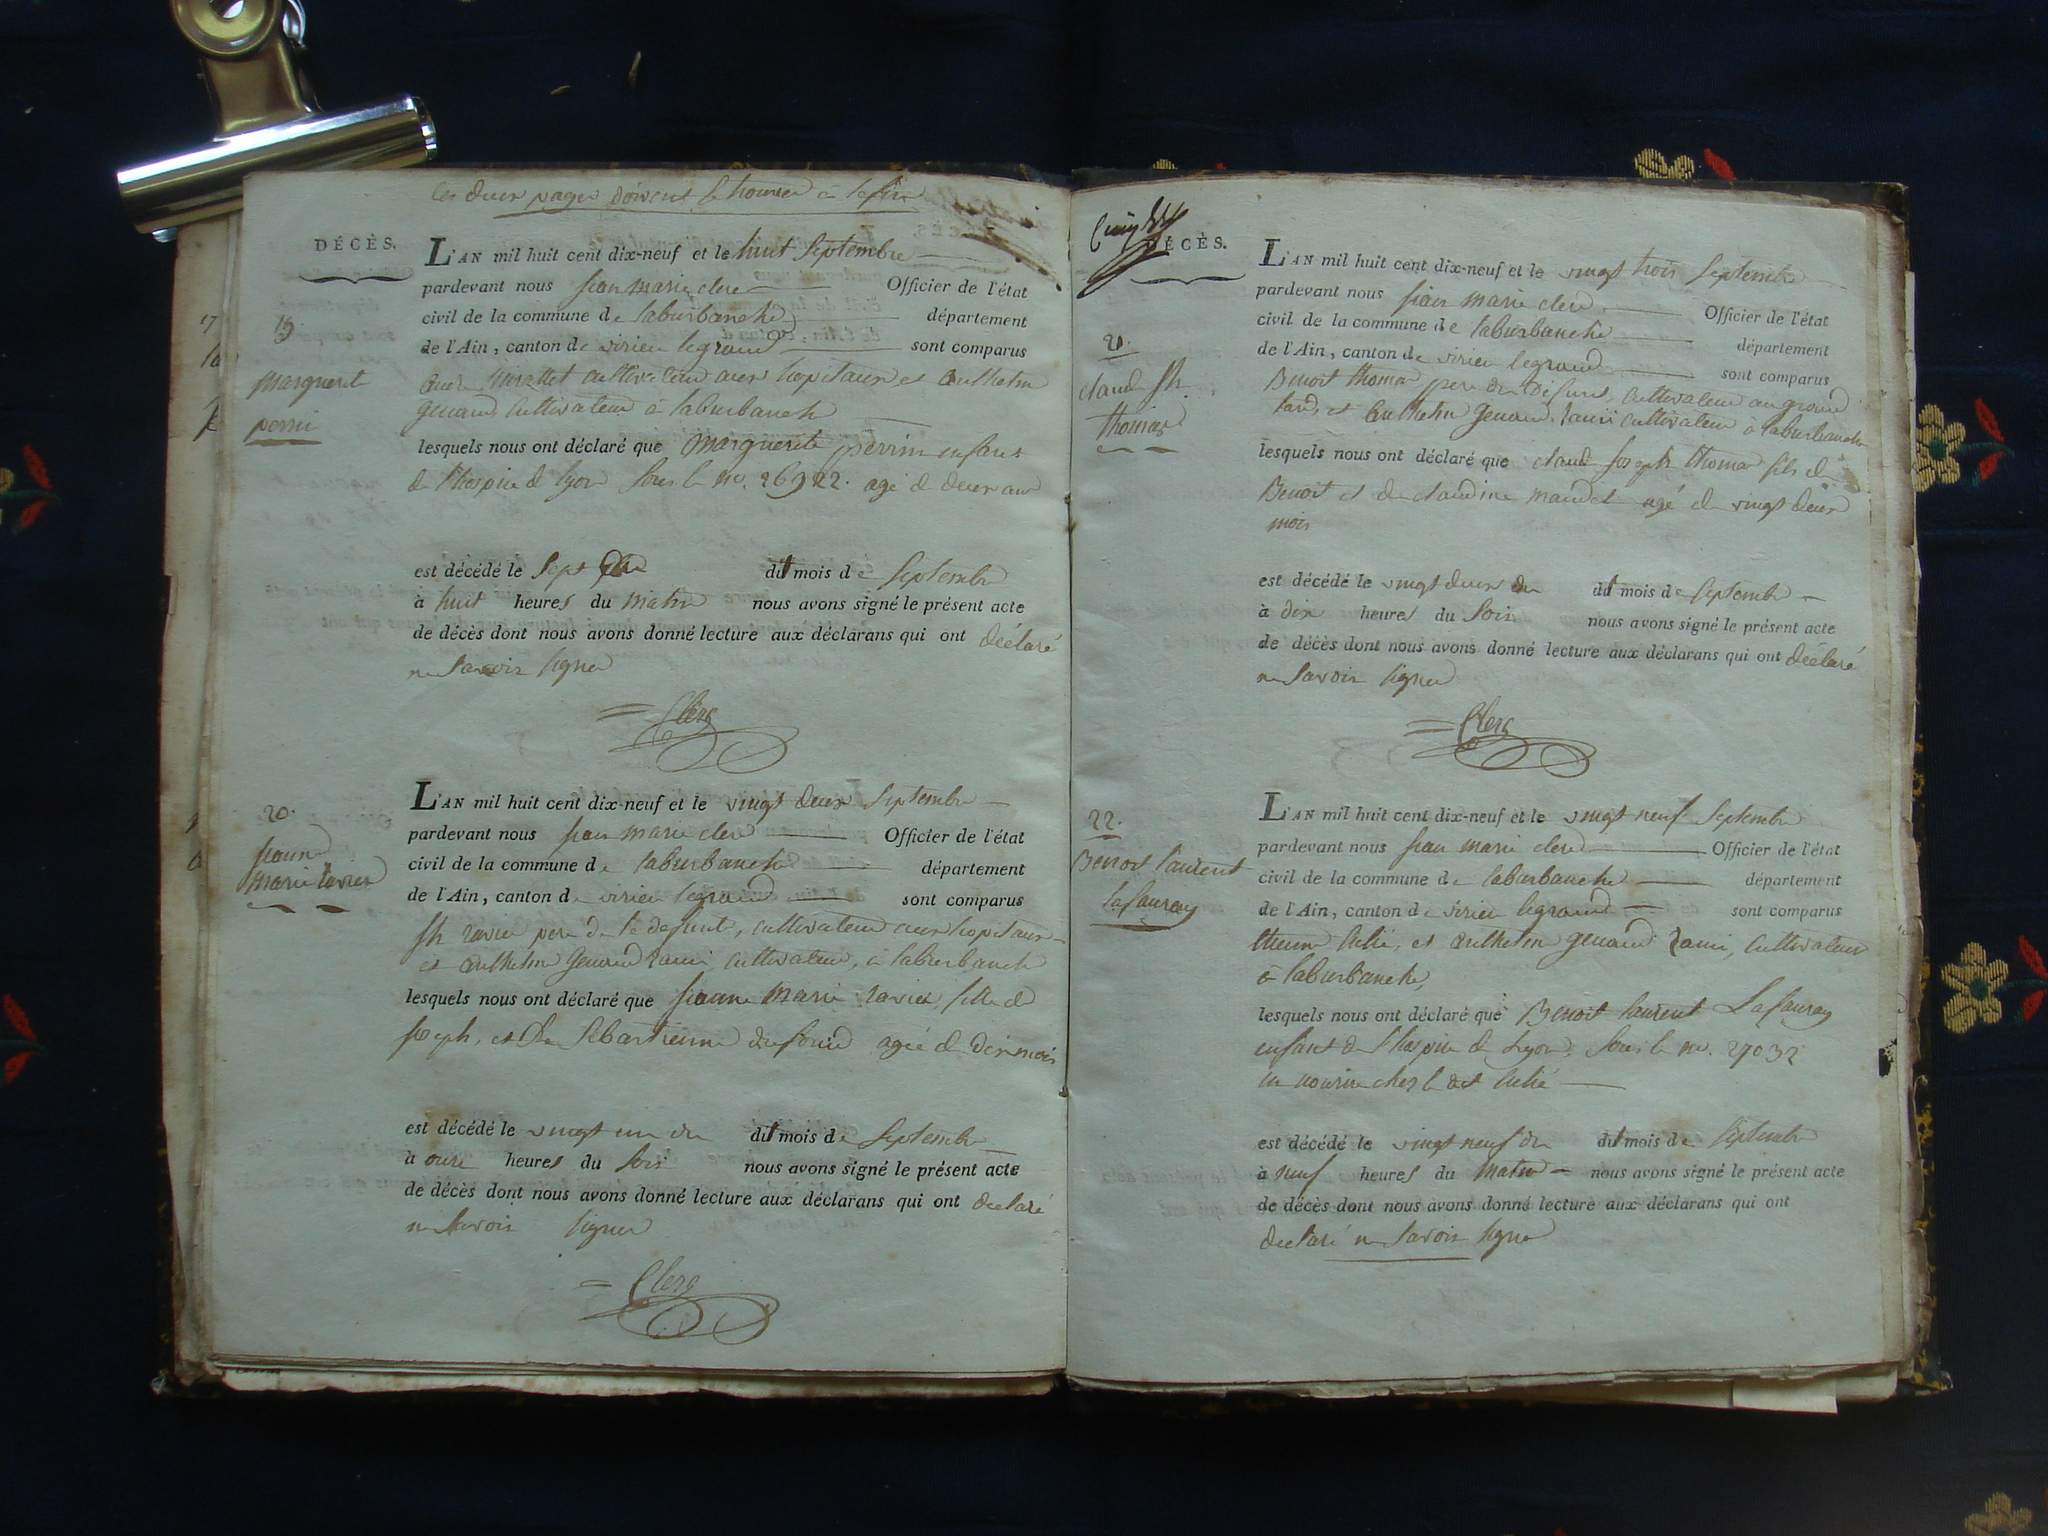 Ces deux pages doivent se trouver à la fin
DÉCÈS.
L'AN mil huit cent dix-neuf et le huit Septembre
pardevant nous jean marie clerc Officier de l'état
civil de la commune de laburbanche département
de l'Ain, canton de virieu legrand sont comparus
19.
Marguerit
perrin
cultivateur aux hopitaux et anthelm
genand cultivateur à laburbanch
lesquels nous ont déclaré que marguerite perrin enfant
de l'hospice d lyon sous le no. 26922. agé d deux ans
est décédé le sept du dit mois de Septembre
à huit heures du matin nous avons signé le présent acte
de décès dont nous avons donné lecture aux déclarans qui ont déclaré
ne Savoir signer
Clerc
L'AN mil huit cent dix-neuf et le vingt deux Septembre
pardevant nous jean marie clerc Officier de l'état
civil de la commune de laburbanche département
de l'Ain, canton de virieu legrand sont comparus
20.
jeanne
marie ravier
jh ravier pere de le defunt, cultivateur aux hopitaux
et anthelm genand rami cultivateur, à laburbanch
lesquels nous ont déclaré que jeanne marie ravier, fille d
joseph, et de Sebastienne dufour agée d dix mois
est décédé le vingt un du dit mois de Septembre
à onze heures du soir nous avons signé le présent acte
de décès dont nous avons donné lecture aux déclarans qui ont declaré
ne Savoir signer
Clerc
DÉCÈS.
L'AN mil huit cent dix-neuf et le vingt trois Septembre
pardevant nous jean marie clerc Officier de l'état
civil de la commune de laburbanche département
de l'Ain, canton de virieu legrand sont comparus
21.
claude jh.
thomas
Benoit thomas pere du défunt, cultivateur au grand
et anthelm genand rami cultivateur à laburbanche
lesquels nous ont déclaré que claude joseph thomas fils d
Benoit et de claudine mandet agé de vingt deux
mois
est décédé le vingt deux du dit mois de Septembre
à dix heures du Soir nous avons signé le présent acte
de décès dont nous avons donné lecture aux déclarans qui ont déclaré
ne Savoir signer
Clerc
L'AN mil huit cent dix-neuf et le vingt neuf Septembre
pardevant nous jean marie clerc Officier de l'état
civil de la commune de laburbanche département
de l'Ain, canton de virieu legrand sont comparus
22.
Benoit laurent
lafauray
et anthelm genand rami, cultivateur
à laburbanche,
lesquels nous ont déclaré que Benoit laurent Lafauray
enfant de l'hospice de Lyon, sous le no. 27032
en nourrice chez le dit
est décédé le vingt neuf du dit mois de Septembre
à neuf heures du matin nous avons signé le présent acte
de décès dont nous avons donné lecture aux déclarans qui ont
declaré ne Savoir signer